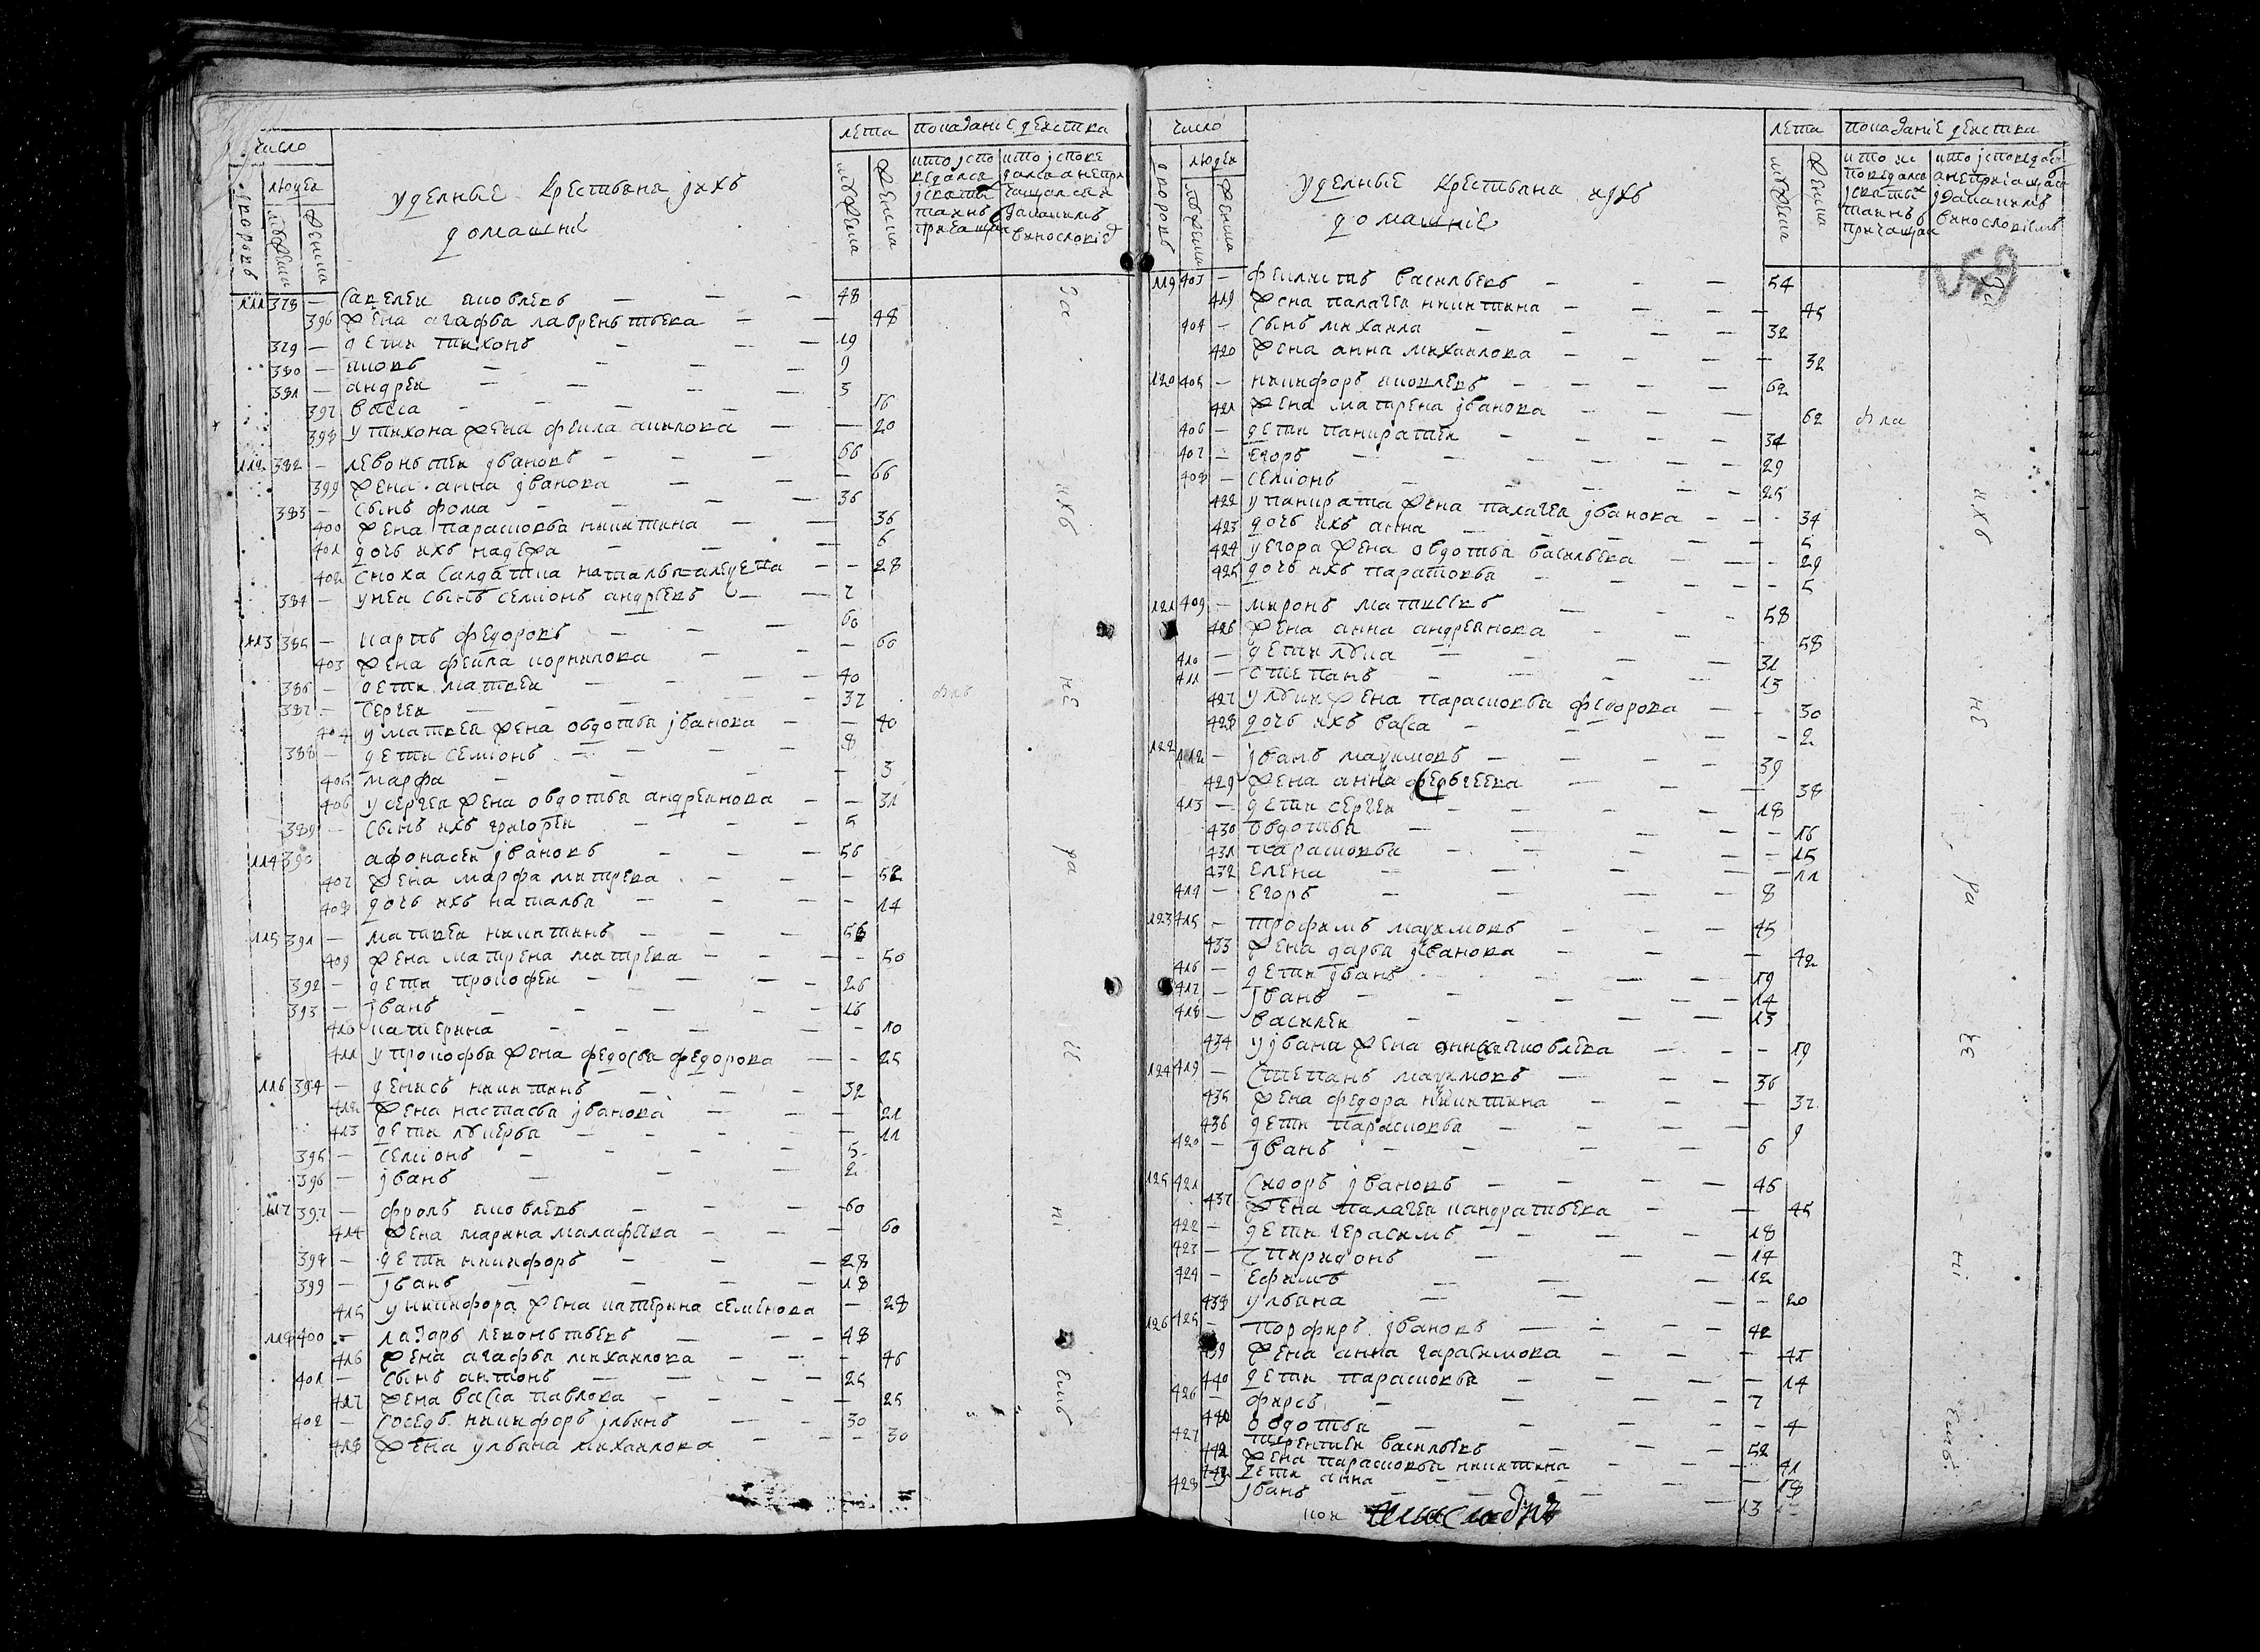 число
лета
показание действа
дворовъ
людей
мужеска
женска
мужеска
женска
удельные крестьяна ихъ
домашние
111 378 — савелей яковлевъ — 48
396 жена агафья лаврентьева — 48
379 — дети тихонъ — 19
380 — яковъ — 9
381 — андрей — 3
397 васса — 16
398 у тихона жена фекла — 20
112 382 — левонтей ивановъ — 66
399 жена анна иванова — 66
383 — сынъ фома — 36
400 жена парасковья никитина — 36
401 дочь ихъ надежа — 6
402 сноха салдатка наталья — 28
384 — у ней сынъ семионъ андреевъ — 7
113 385 — карпъ федоровъ — 60
403 жена фекла корнилова — 60
386 — дети матвей — 40
387 — сергей — 37
404 у матвея жена овдотья иванова — 40
388 — дети семионъ — 8
405 марфа — 3
406 у сергея жена овдотья андреянова — 31
389 — сынъ ихъ григорей — 5
114 390 афонасей ивановъ — 56
407 жена марфа митрева — 52
408 дочь ихъ наталья — 14
115 391 — матвей никитинъ — 56
409 жена матрена митрева — 50
392 — дети прокофей — 26
393 — иванъ — 16
410 катерина — 10
411 у прокофья жена федосья федорова — 25
116 394 — денисъ никитинъ — 32
412 жена настасья иванова — 21
413 дети лукерья — 11
395 — семионъ — 5
396 — иванъ — 2
117 397 — фролъ яковлевъ — 60
414 жена марина малафеева — 60
398 — дети никифоръ — 28
399 — иванъ — 18
415 у никифора жена катерина семенова — 28
118 400 — лазорь левонтьевъ — 48
416 жена агафья михаилова — 46
401 — сынъ антонъ — 25
417 жена васса павлова — 25
402 — соседъ никифоръ ильинъ — 30
418 жена ульяна михаилова — 30
число
лета
показание действа
дворовъ
людей
мужеска
женска
мужеска
женска
удельные крестьяна ихъ
домашние
119 403 — феклистъ васильевъ — 54
419 жена палагея никитина — 45
404 — сынъ михаила — 32
420 жена анна михаилова — 32
120 405 — никифоръ яковлевъ — 62
421 жена матрена иванова — 62
406 — дети панкратей — 34
407 — егоръ — 29
408 — семионъ — 25
422 у панкрата жена палагея иванова — 34
423 дочь ихъ анна — 5
424 у егора жена овдотья васильева — 29
425 дочь ихъ парасковья — 5
121 409 — миронъ матвеевъ — 58
426 жена анна андреянова — 58
410 — дети лука — 31
411 — степанъ — 13
427 у луки жена парасковья федорова — 30
428 дочь ихъ васса — 2
122 412 — иванъ максимовъ — 39
429 жена анна — 38
413 — дети сергей — 18
430 овдотья — 16
431 парасковья — 15
432 елена — 11
414 — егоръ — 8
123 415 — трофимъ максимовъ — 45
433 жена дарья иванова — 42
416 — дети иванъ — 19
417 — иванъ — 14
418 — василей — 13
434 у ивана жена яковлева — 19
124 419 — степанъ максимовъ — 36
435 жена федора никитина — 37
436 дети парасковья — 9
420 — иванъ — 6
125 421 сидоръ ивановъ — 46
437 жена палагея кандратьева — 45
422 — дети герасимъ — 18
423 — спиридонъ — 14
424 — ефимъ — 12
438 ульяна — 20
126 425 — порфиръ ивановъ — 42
439 жена анна гарасимова — 41
440 дети парасковья — 14
426 — фирсъ — 7
овдотья — 4
427 терентей васильевъ — 52
442 жена парасковья никитина — 41
дети анна — 18
428 — иванъ — 13